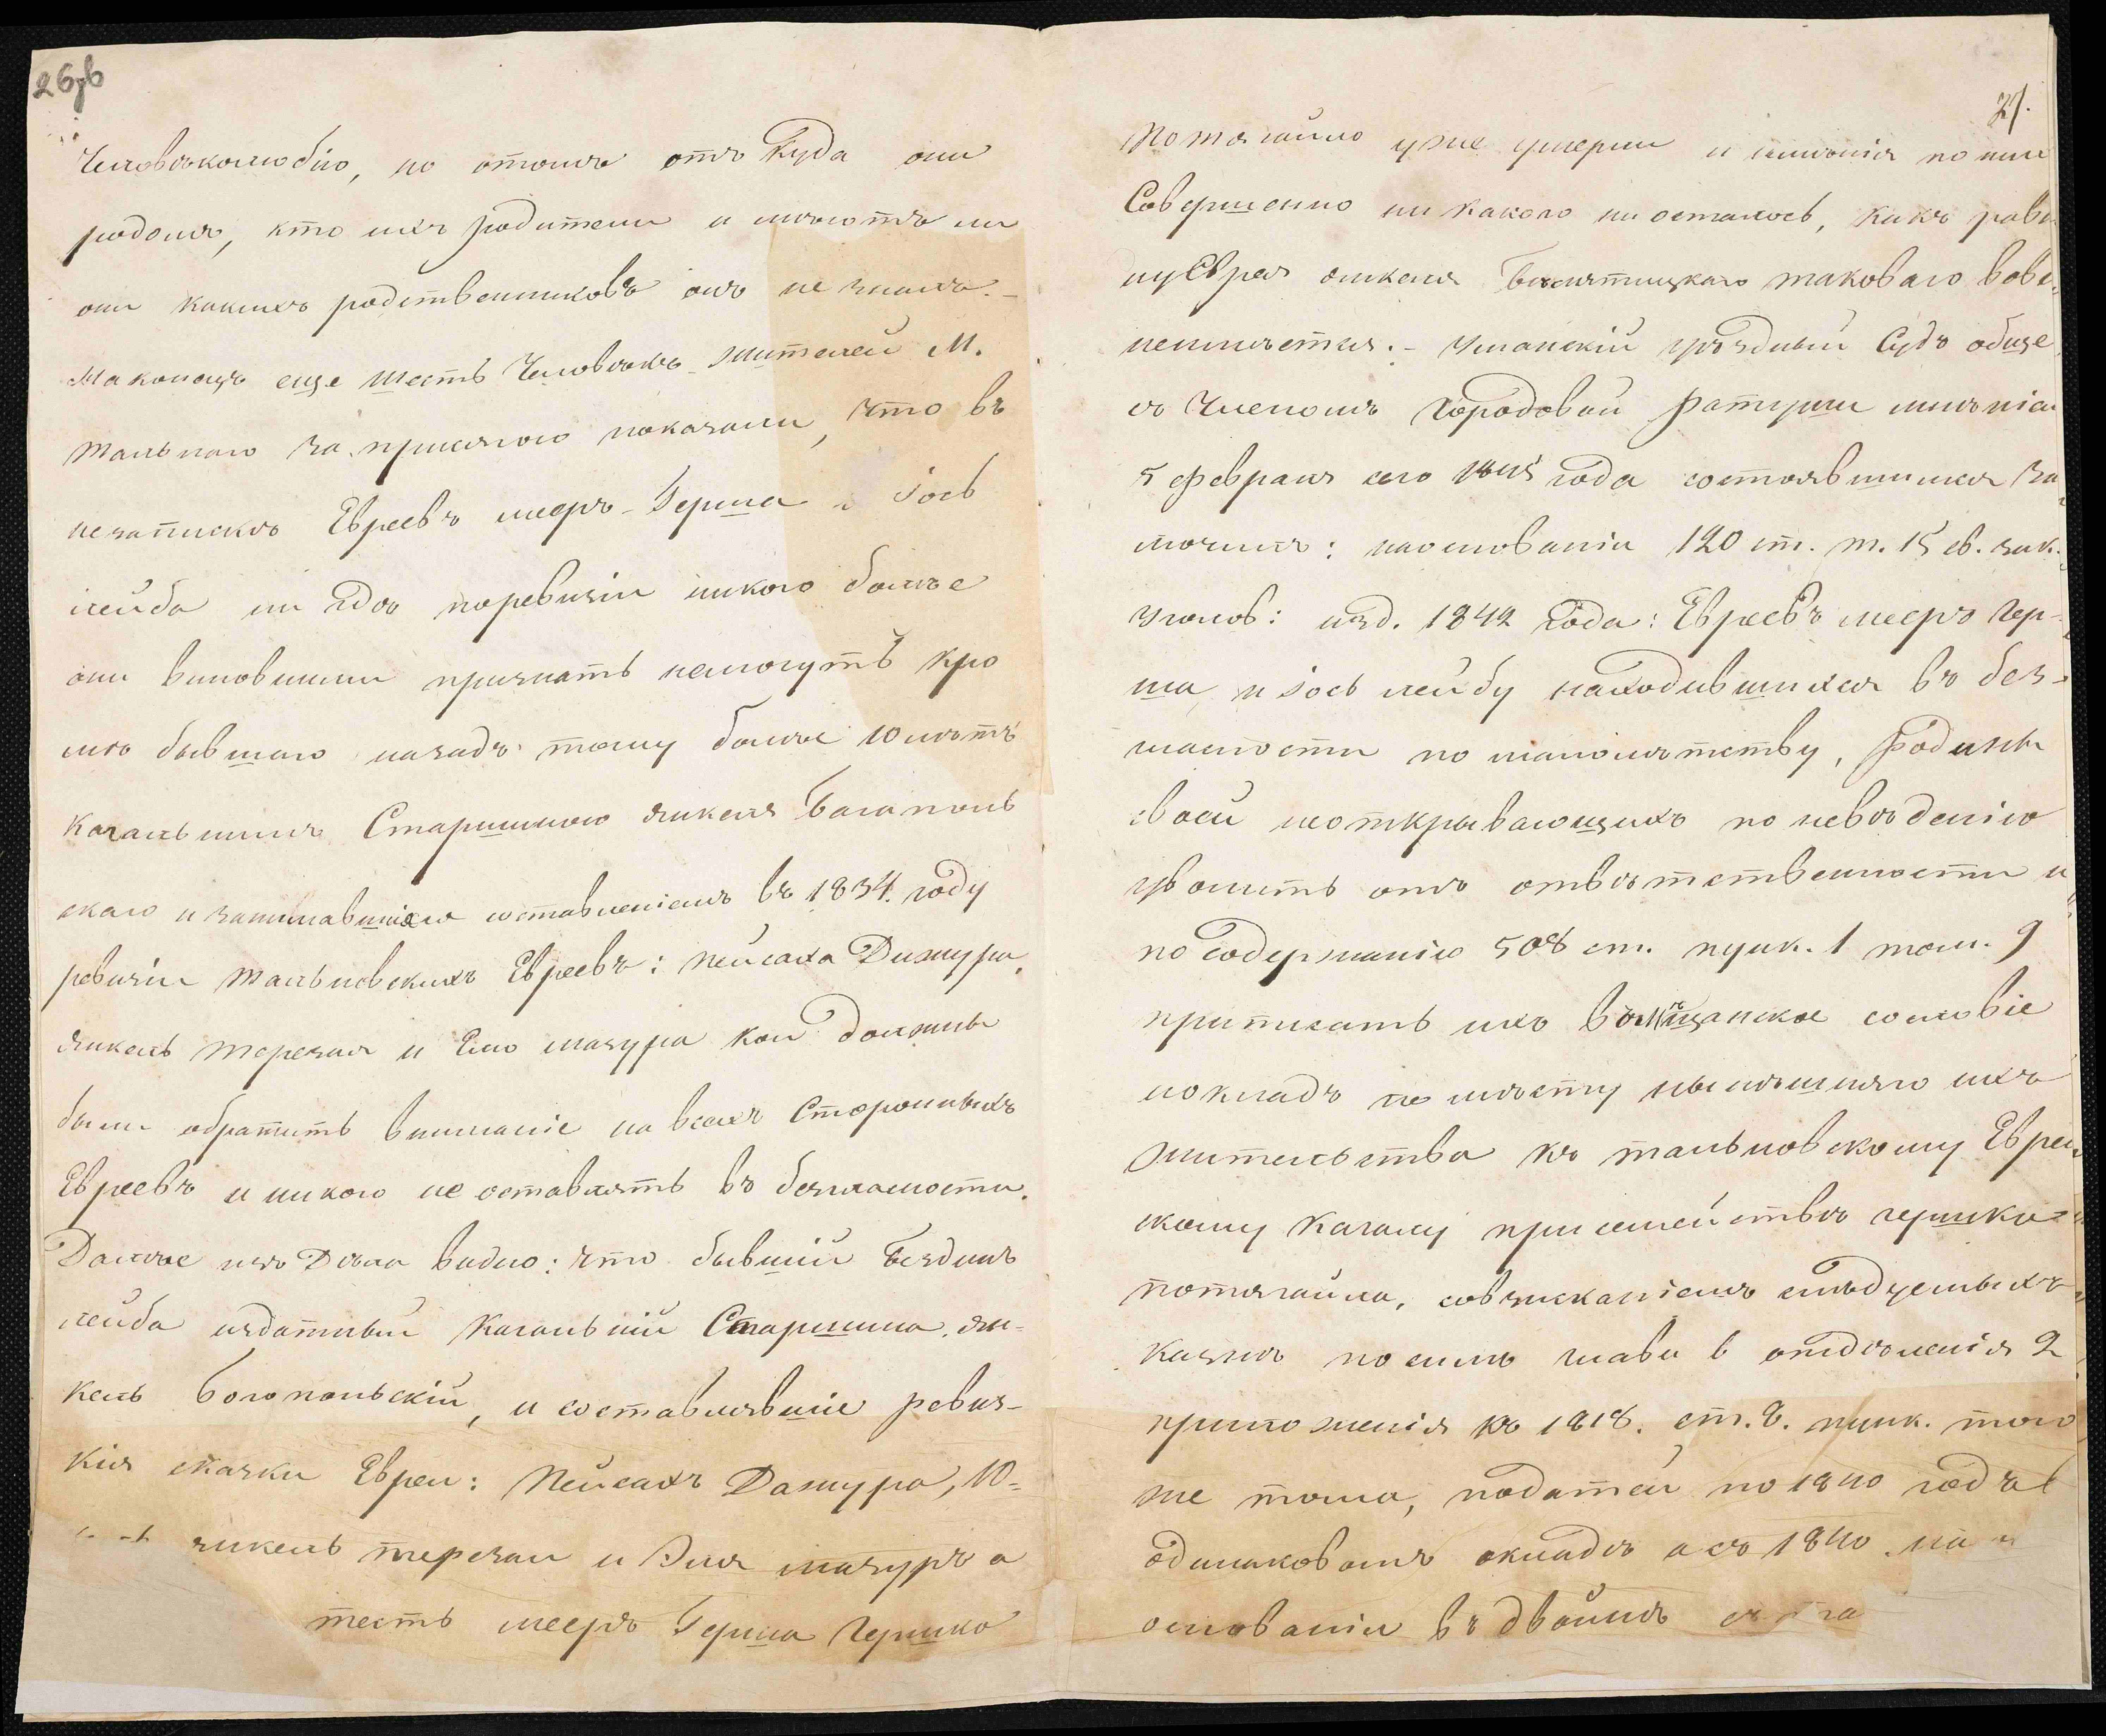 26об
Человѣколюбію, но отомъ отъ куда они
родомъ, кто ихъ родители и имѣютъ ли
они какихъ родственниковъ онъ не зналъ. –
Наконецъ еще шесть Человѣкъ жителей М.
Тальнаго за присягою показали, что въ
незапискѣ Евреевъ Мееръ-Герша и Іось
лейба ни гдѣ поревизіи никого болѣе
они виновными признать немогутъ кро
мѣ бывшаго назадъ тому болѣе 10 лѣтъ
Кагальнымъ Старшиною янкеля Багополь
скаго и занимавшихся составленіемъ въ 1834. году
ревизіи Тальновскихъ Евреевъ: Пейсаха Дижура,
янкель терезая и Елю мазура кои должны
были обратить вниманіе на всехъ Стороннихъ
Евреевъ и никого не оставлять въ безгласности.
Далѣе изъ Дѣла видно: что бывшій Бездинъ
лейба издатный Кагальній Старшина, Ян-
кель Богопольскій, и составлявшіе ревиз-
кія сказки Евреи: Пейсахъ Дажура, Ю-
янкель терезан и Эля мазуръ а
тесть Мееръ Герша Гершко
27.
Потягайло уже умерли и имѣнія по ним
Совершенно ни какого ни осталось, какъ рав
ну Еврея янкеля таковаго вовс
неимѣется. – Уманскій уѣздный Судъ обще
съ Членомъ Городовой Ратуши мнѣніем
5 февраля сего 1845 года состоявшимся за
ключилъ: наоснованіи 120 ст. т. 15 св. зак.
Уголов: изд. 1842 года: Евреевъ Меера Гер-
ша, и Іось лейбу находившихся въ без-
гласности по малолѣтству, Родины
своей неоткрывающихъ по невѣденію
уволить отъ отвѣтственности и
по содержанію 508 ст. пунк. 1 том. 9
приписать ихъ вомѣщанское сословіе
нокладъ по мѣсту нынѣшняго ихъ
жительства къ тальновскому Еврей
скому Кагалу при семействѣ гершка
потягайла, совзысканіемъ слѣдуемыхъ
Казнѣ посилѣ главы 6 отдѣленія 2
приложенія къ 1818. ст. 8. пунк. того
же тома, податей по 1840 годъ в
одинаковомъ окладѣ а съ 1840 на
основаніи въ двойнѣ